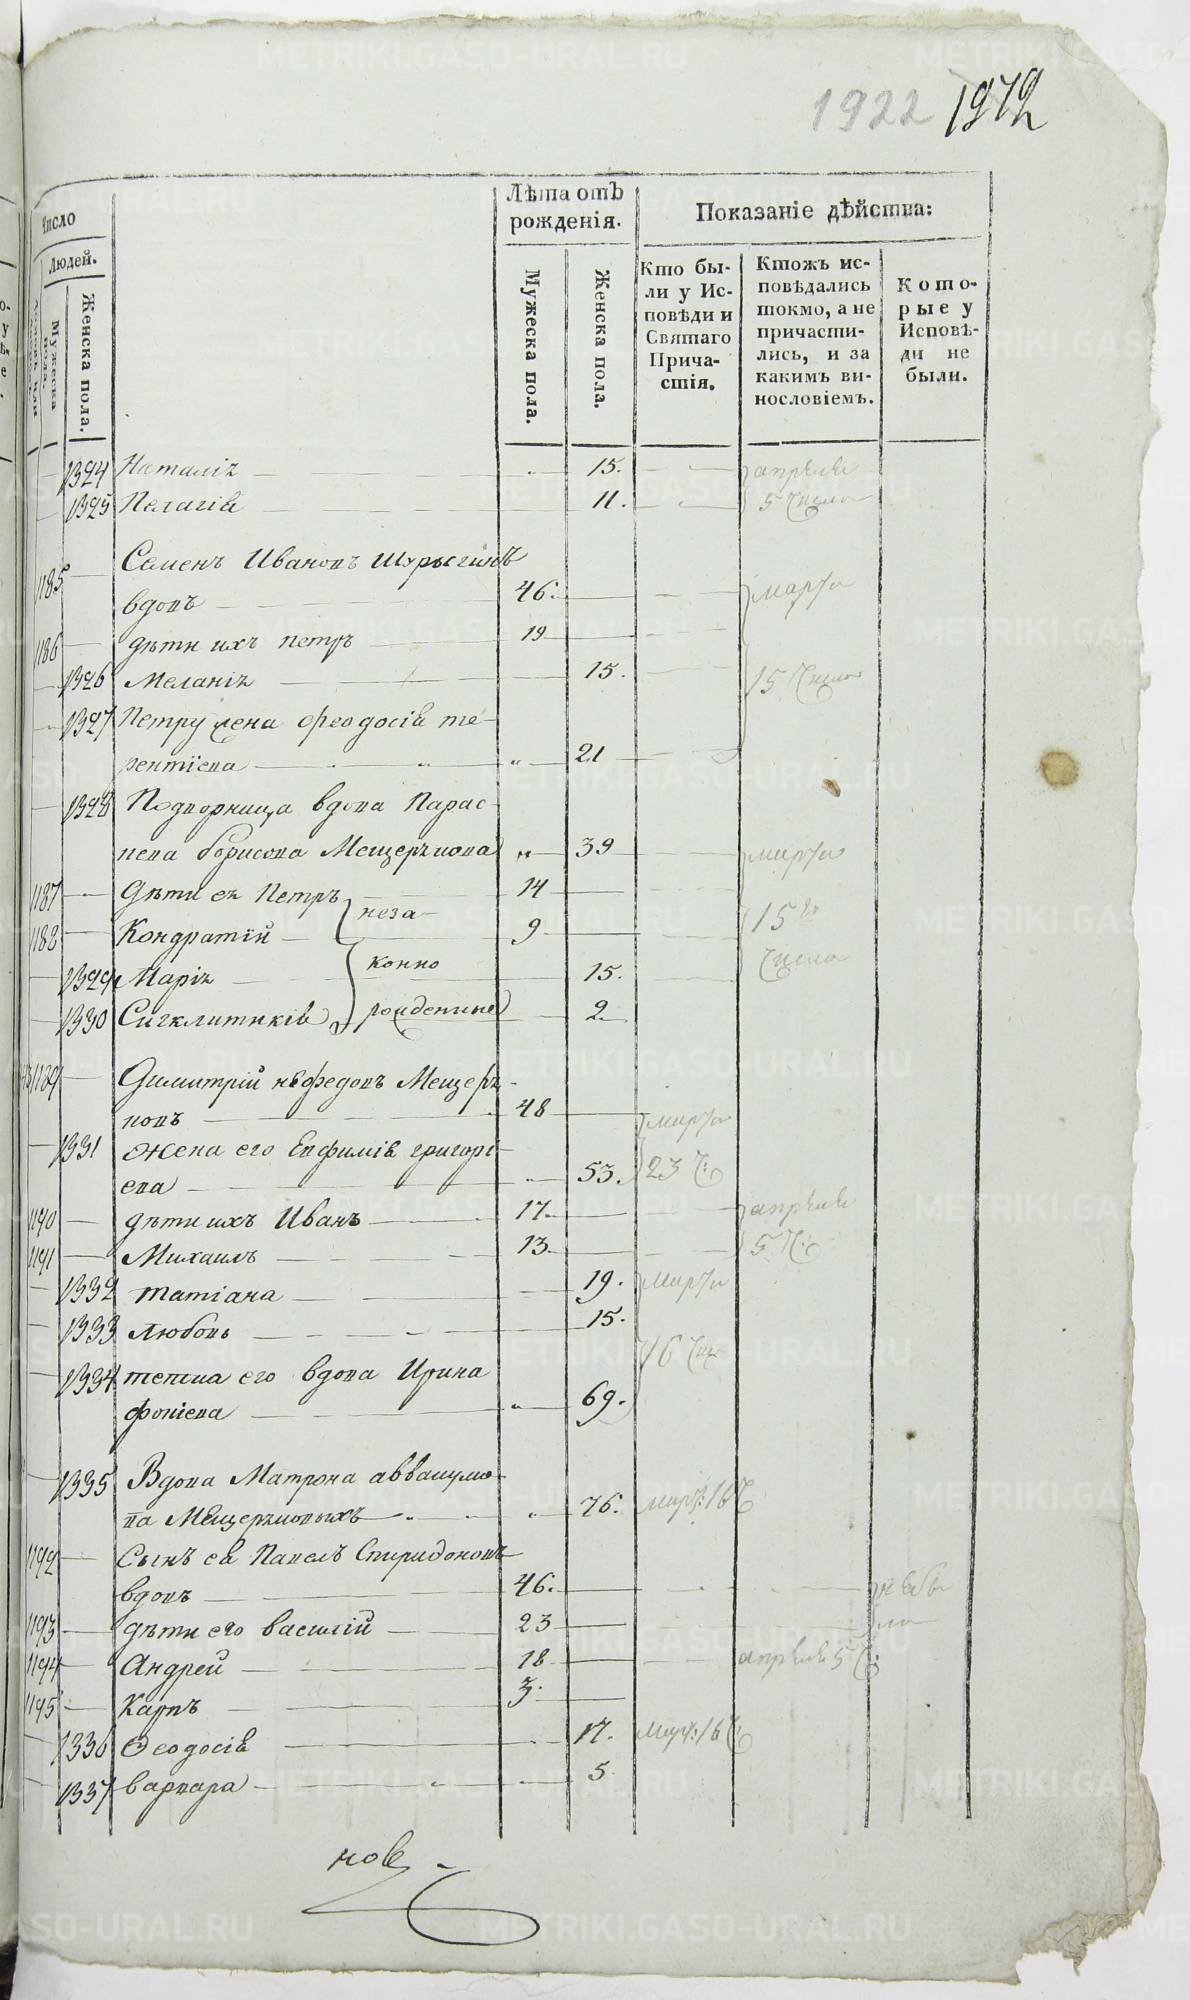 1922 1972
Число
Людей.
Мужеска пола.
Женска пола.
Лѣта отъ рожденія.
Мужеска пола.
Женска пола.
Показаніе дѣйства:
Кто бы-
ли у Ис-
повѣди и
Святаго
Прича-
стія.
Ктожъ ис-
повѣдались
токмо, а не
причасти-
лись, и за
какимъ ви-
нословіемъ.
Кото-
рые у
Исповѣ-
ди не
были.
1324 Наталія 15. апрѣля
1325 Пелагія 11. 5 числа
Семенъ Ивановъ Шурыгинъ
1185 вдовъ 46. марта
1186 дѣти ихъ Петръ 19
1326 Меланія 15. 15 числа
1327 Петру жена Феодосія Те-
рентіева 21
1328 Подворница вдова Парас-
кева Борисова Мещерякова 39 марта
1187 Дѣти ея Петръ 14
неза-
1188 Кондратій 9 15го
конно
1329 Марія 15. числа
1330 Сигклитикія рожденные 2
1189 Димитрій Нефедовъ Мещеря-
ковъ 48 марта
1331 Жена его Евфимія Григорі-
ева 53. 23 ч:
1190 дѣти ихъ Иванъ 17. апрѣля
1191 Михаилъ 13. 5 ч:
1332 Татіана 19. марта
1333 Любовь 15.
16 чис
1334 тетка его вдова Ирина
фокіева 69.
1335 Вдова Матрона Аввакумо-
ва Мещеряковыхъ 76. март: 16 ч
1192 Сынъ ея Павелъ Спиридоновъ
вдовъ 46. не бы
1193 дѣти его Василій 23 ли
1194 Андрей 18 апрѣля 5 ч:
1195 Карпъ 3.
1336 Феодосія 17. мар: 16 ч:
1337 Варвара 5
нов
METRIKI.GASO-URAL.RU